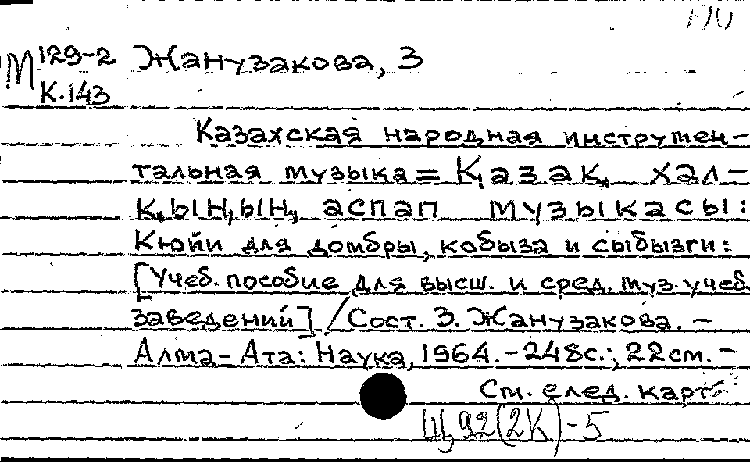 М 129-2 Жанузакова, З
К.143
Казахская народная инструмен-
тальная музыка = Қазақ хал-
қының аспап музыкасы:
Кюйи для домбры, кобыза и сыбызги:
[Учеб. пособие для высш. и сред. муз. учеб.
заведений] / Сост. З. Жанузакова. –
Алма-Ата: Наука, 1964. – 248с.; 22см. –
См. след. карт
Щ92(2К)-5